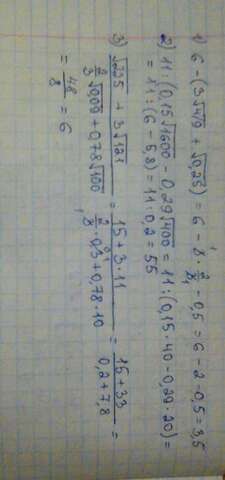 1) 6 - (3√4/9 + √0,25) = 6 - 3 · 2/3 - 0,5 = 6 - 2 - 0,5 = 3,5
2) 11 : (0,15√1600 - 0,29√400) = 11 : (0,15 · 40 - 0,29 · 20) =
= 11 : (6 - 5,8) = 11 : 0,2 = 55
3) (√225 + 3√121) / (2/3 √0,09 + 0,78√100) = (15 + 3 · 11) / (2/3 · 0,3 + 0,78 · 10) = (15 + 33) / (0,2 + 7,8) =
= 48/8 = 6